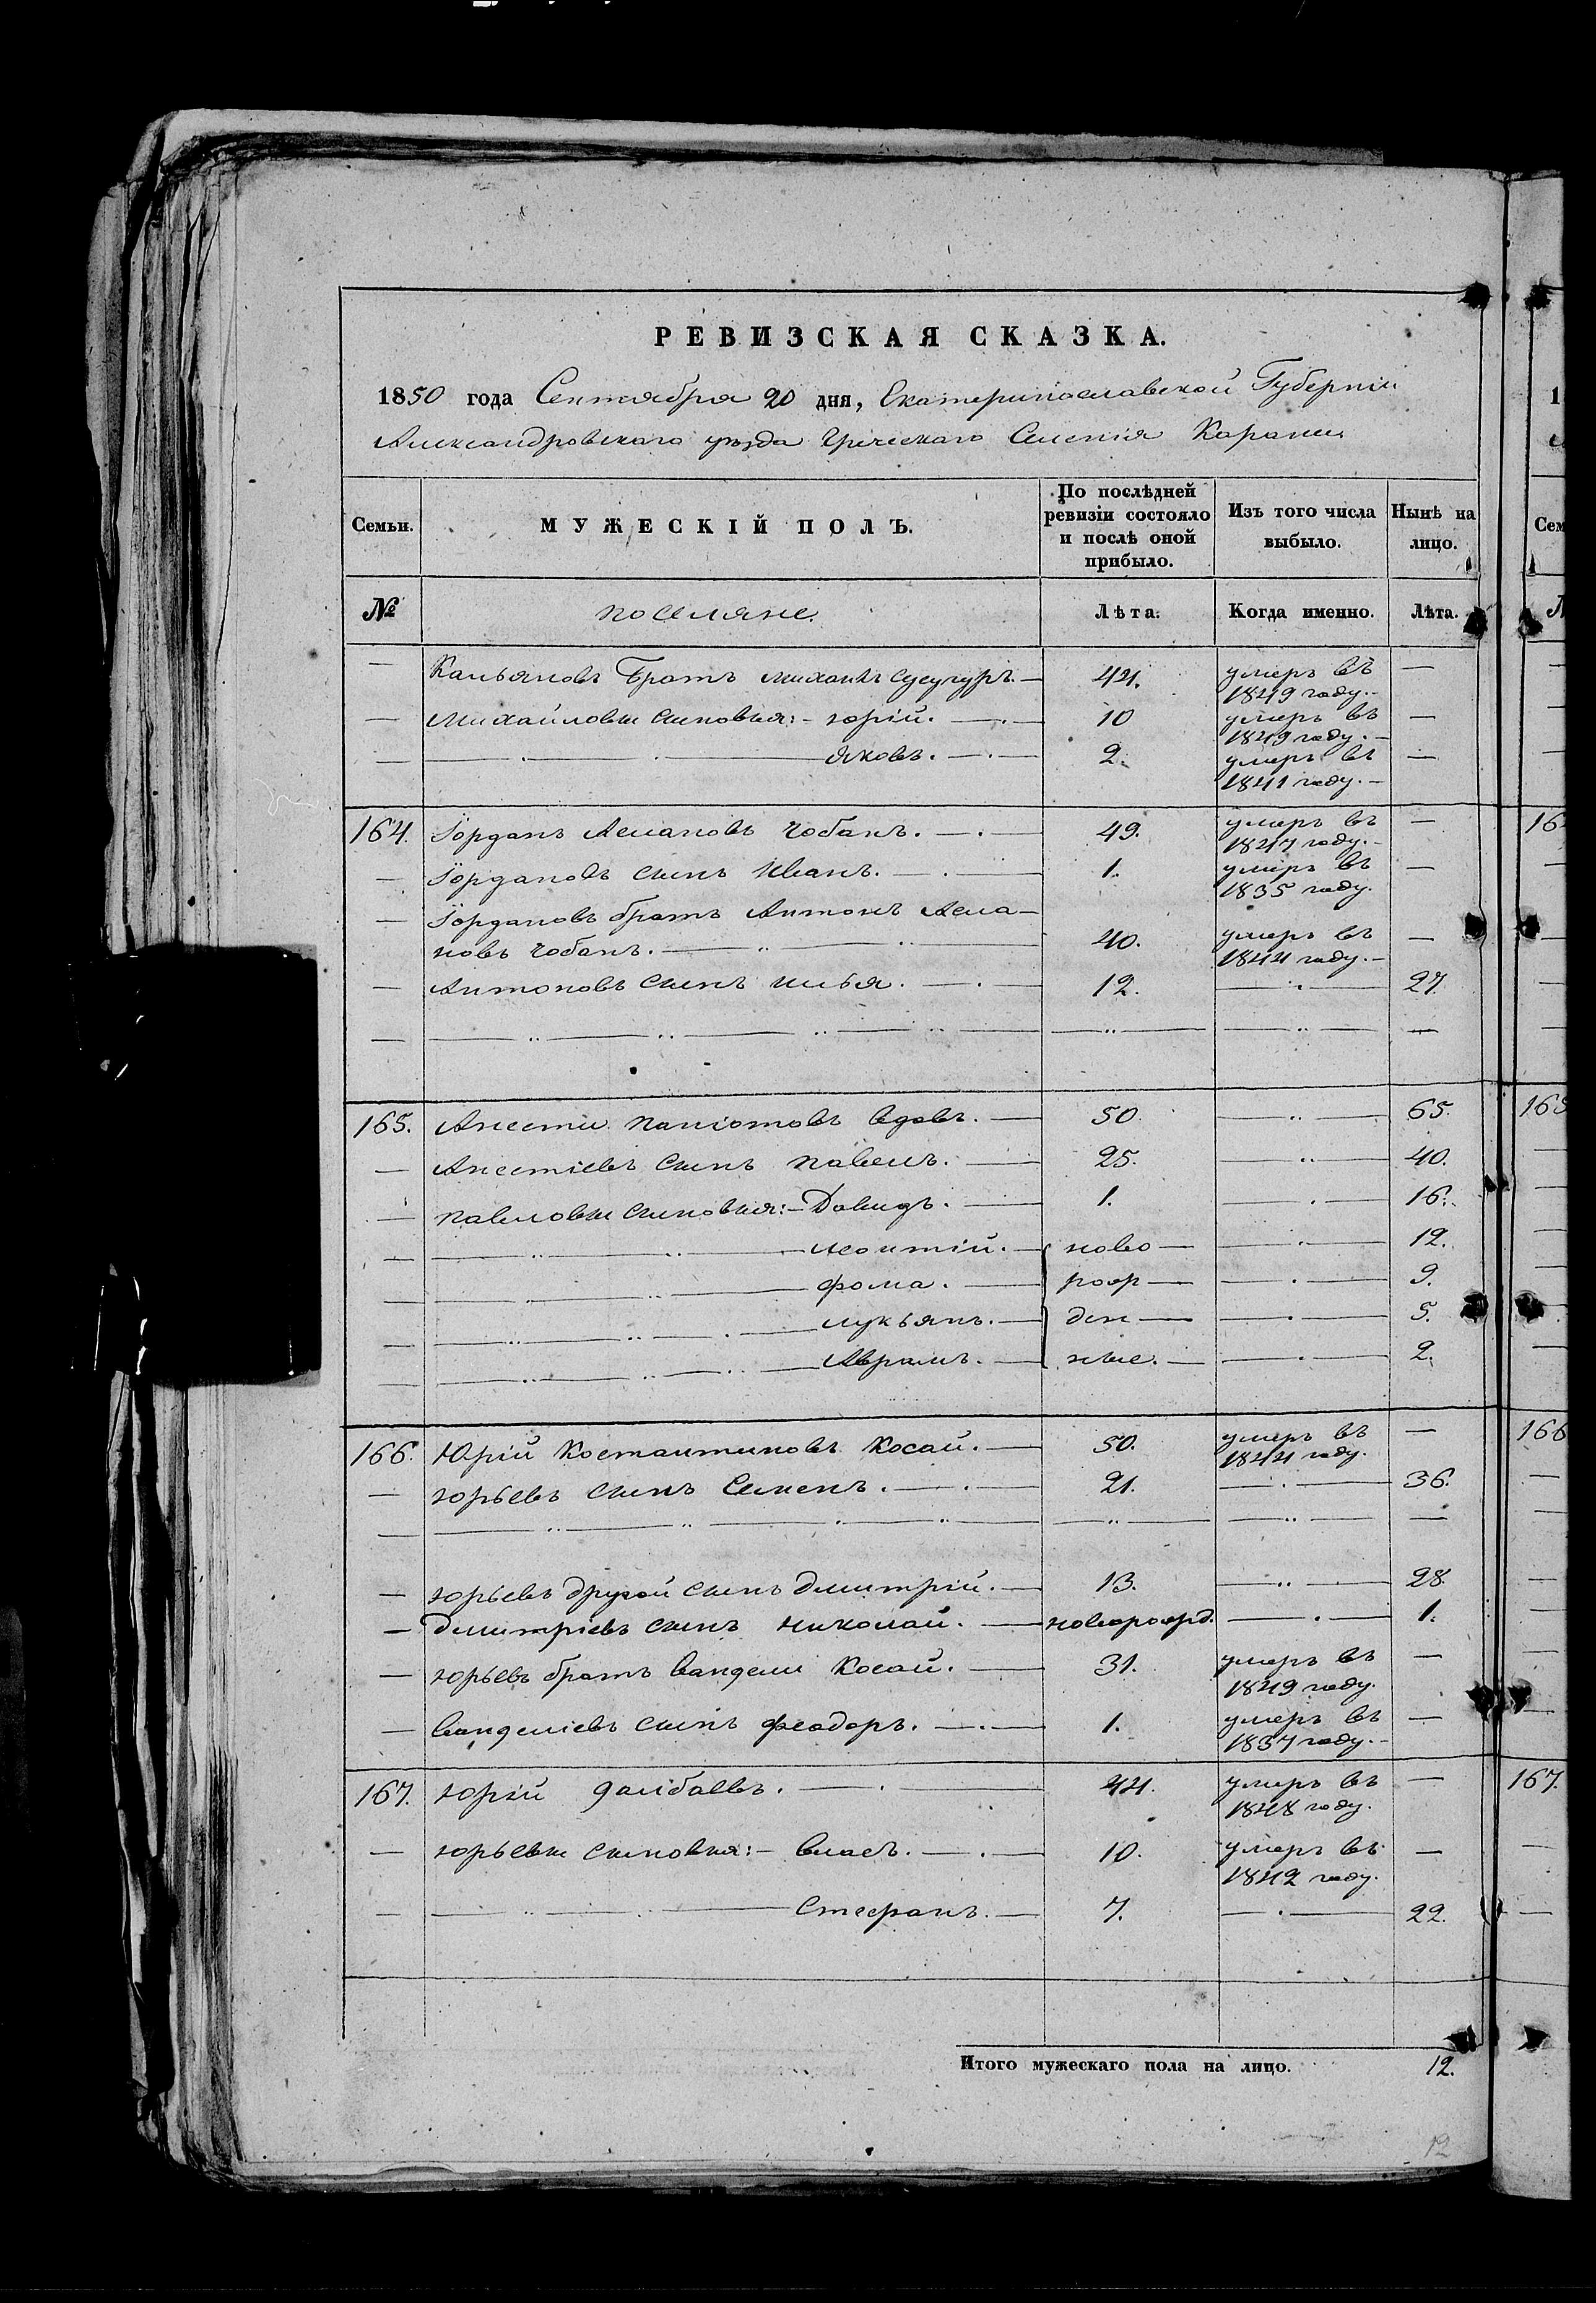 РЕВИЗСКАЯ СКАЗКА.
1850 года Сентября 20 дня, Екатеринославской Губерніи
Александровскаго уѣзда Греческаго Селенія Карани
Семьи. МУЖЕСКІЙ ПОЛЪ. По послѣдней ревизіи состояло и послѣ оной прибыло. Изъ того числа выбыло. Нынѣ на лицо.
№ поселяне. Лѣта. Когда именно. Лѣта.
— Касьяновъ Братъ Михаилъ — 44. умеръ въ 1849 году. —
— Михайловы сыновья:- Юрій. — 10 умеръ въ 1849 году. —
— Яковъ. — 2. умеръ въ 1841 году. —
164. Іорданъ Аслановъ Чобанъ. — 49. умеръ въ 1847 году. —
— Іордановъ сынъ Иванъ. — 1. умеръ въ 1835 году. —
— Іордановъ братъ Антонъ Асла-
новъ Чобанъ. — 40. умеръ въ 1844 году. —
— Антоновъ сынъ Илья. — 12. — 27.
165. Анести Папіотовъ вдовъ. — 50. — 65.
— Анестіевъ сынъ Павелъ. — 25. — 40.
— Павловы сыновья:- Давидъ. — 1. — 16.
— Леонтій. — ново — 12.
— Фома. — рож — 9.
— Лукьянъ. — ден — 5.
— Аврамъ. — ные. — 2.
166. Юрій Костантиновъ Косай. — 50. умеръ въ 1844 году. —
— Юрьевъ сынъ Семенъ. — 21. — 36.
— Юрьевъ другой сынъ Дмитрій. — 13. — 28.
— Дмитріевъ сынъ Николай. — новорожд. — 1.
— Юрьевъ братъ Вандели Косай. — 31. умеръ въ 1849 году. —
—Ванделіевъ сынъ Феодоръ. — 1. умеръ въ 1837 году. —
167. Юрій — 44. умеръ въ 1848 году. —
— Юрьевы сыновья:- Власъ. — 10. умеръ въ 1842 году. —
— Стефанъ. — 7. — 22.
Итого мужескаго пола на лицо. 12.
12